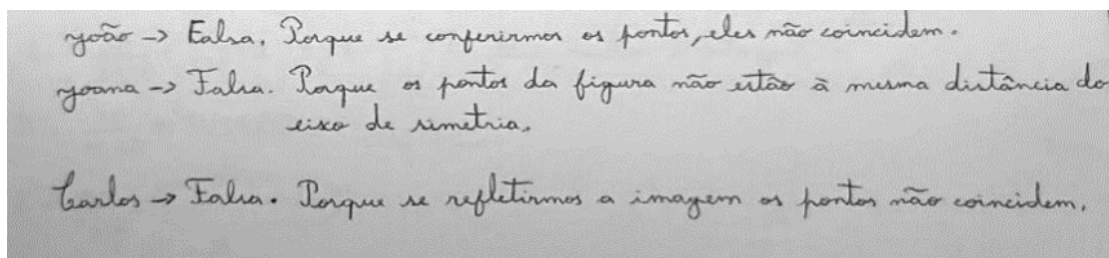 João → Falsa. Porque se conferirmos os pontos, eles não coincidem.
Joana → Falsa. Porque os pontos da figura não estão à mesma distância do
eixo de simetria.
Carlos → Falsa. Porque se refletirmos a imagem os pontos não coincidem.